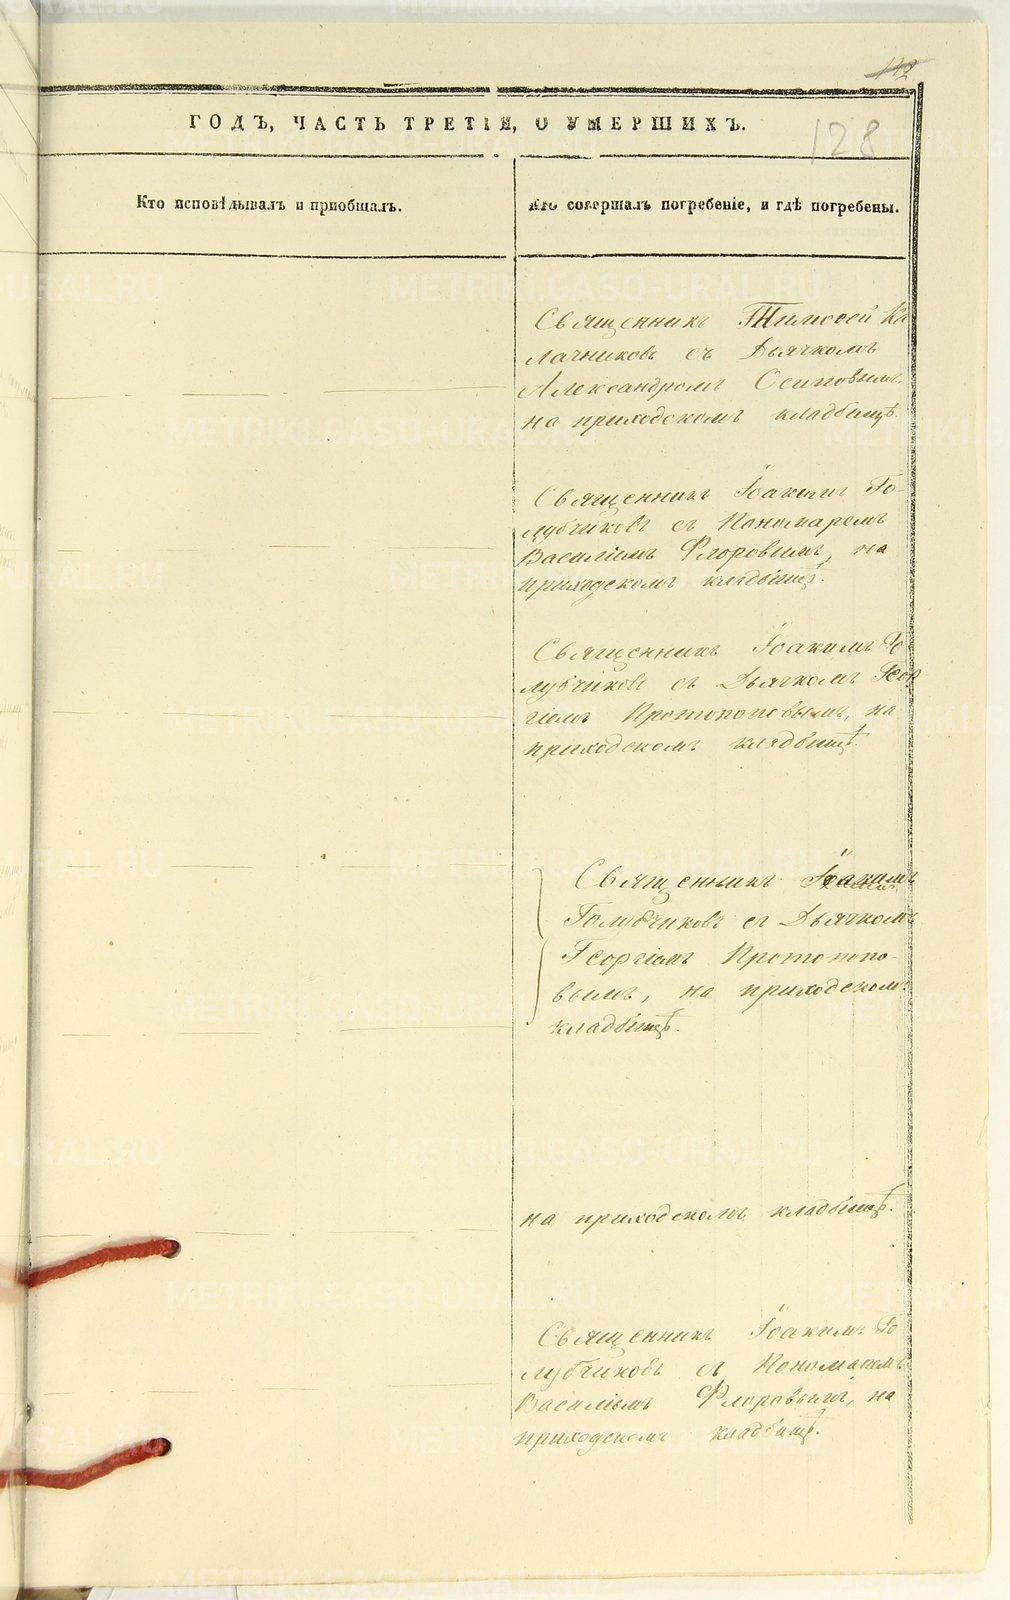 142
128
ГОДЪ, ЧАСТЬ ТРЕТІЯ, О УМЕРШИХЪ.
Кто исповѣдывалъ и приобщалъ.
Кто совершалъ погребеніе, и гдѣ погребены.
Священникъ Тимоѳей Ка
лачниковъ съ Дьячкомъ
Александромъ Осиповымъ
на приходскомъ кладбищѣ.
Священникъ Іоакимъ Го-
лубчиковъ съ Пономаремъ
Василіемъ Флоровымъ, на
приходскомъ кладбищѣ.
Священникъ Іоакимъ Го
лубчиковъ съ Дьячкомъ Геор
гіемъ Протопоповымъ, на
приходскомъ кладбищѣ.
Священникъ Іоакимъ
Голубчиковъ съ Дьячкомъ
Георгіемъ Протопопо-
вымъ, на приходскомъ
кладбищѣ.
на приходскомъ кладбищѣ.
Священникъ Іоакимъ Го
лубчиковъ съ Пономаремъ
Василіемъ Флоровымъ, на
приходскомъ кладбищѣ.
METRIKI.GASO-URAL.RU